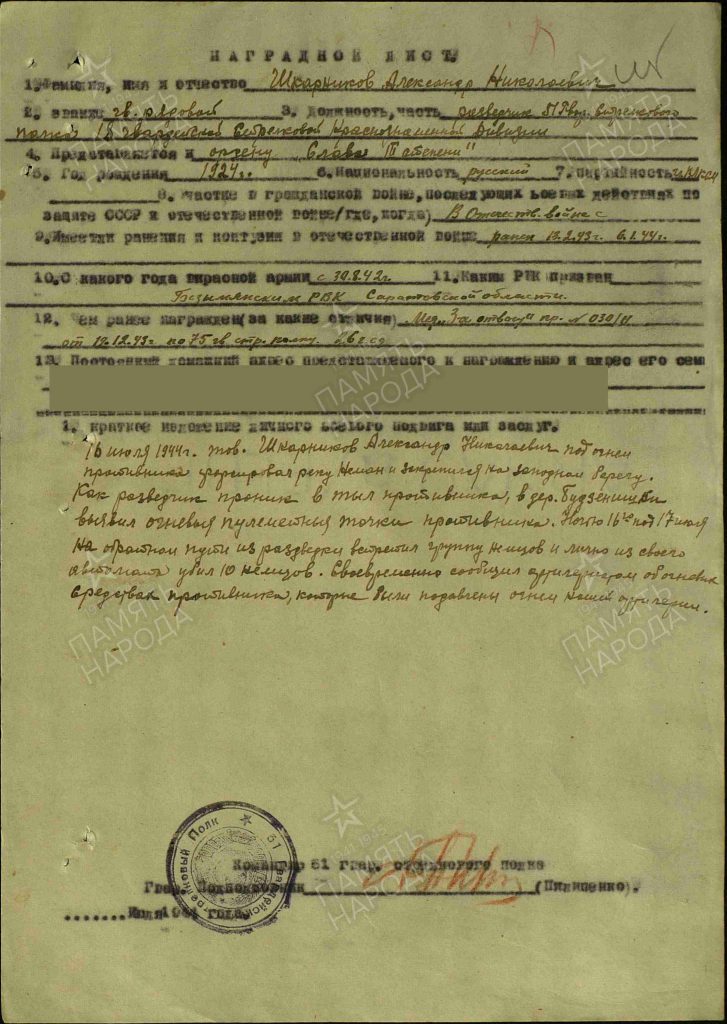 НАГРАДНОЙ ЛИСТ.
1. Фамилия, имя и отчество Шкарников Александр Николаевич
2. Звание гв. рядовой 3. Должность, часть разведчик 51 Гвар. стрелкового
полка 18 гвардейской Стрелковой Краснознаменной Дивизии
4. Представляется к ордену "Слава III степени"
5. Год рождения 1924г. 6. Национальность русский 7. Партийность чл.ВЛКСМ
8. Участие в гражданской войне, последующих боевых действиях по
защите СССР и отечественной войне/где, когда) В Отечеств. войне с
9. Имеет ли ранения и контузии в отечественной войне ранен 13.2.43г. 6.1.44г.
10. С какого года в красной армии с 30.8.42г. 11. Каким РВК призван
Безымянским РВК Саратовской области.
12. Чем ранее награжден(за какие отличия) Мед. "За отвагу" пр. № 030/н
от 19.12.43г по 75 гв стр. полку
13. Постоянный домашний адрес представляемого к награждению и адрес его сем
1. краткое изложение личного боевого подвига или заслуг.
16 июля 1944г. тов. Шкарников Александр Николаевич под огнем
противника форсировал реку Неман и закрепился на западном берегу.
Как разведчик проник в тыл противника, в дер.
выявил огневые пулеметные точки противника. Ночью 16го под 17 июля
на обратном пути из разведки встретил группу немцов и лично из своего
автомата убил 10 немцов. Своевременно сообщил артилеристам об огневых
средствах противника, которые были подавлены огнем нашей артилерии.
Командир 51 гвар. стрелкового полка
Гвар. Подполковник (Пилипенко).
.......Июля 1944 года.
51 Гвардейский Стрелковый Полк
ПАМЯТЬ НАРОДА